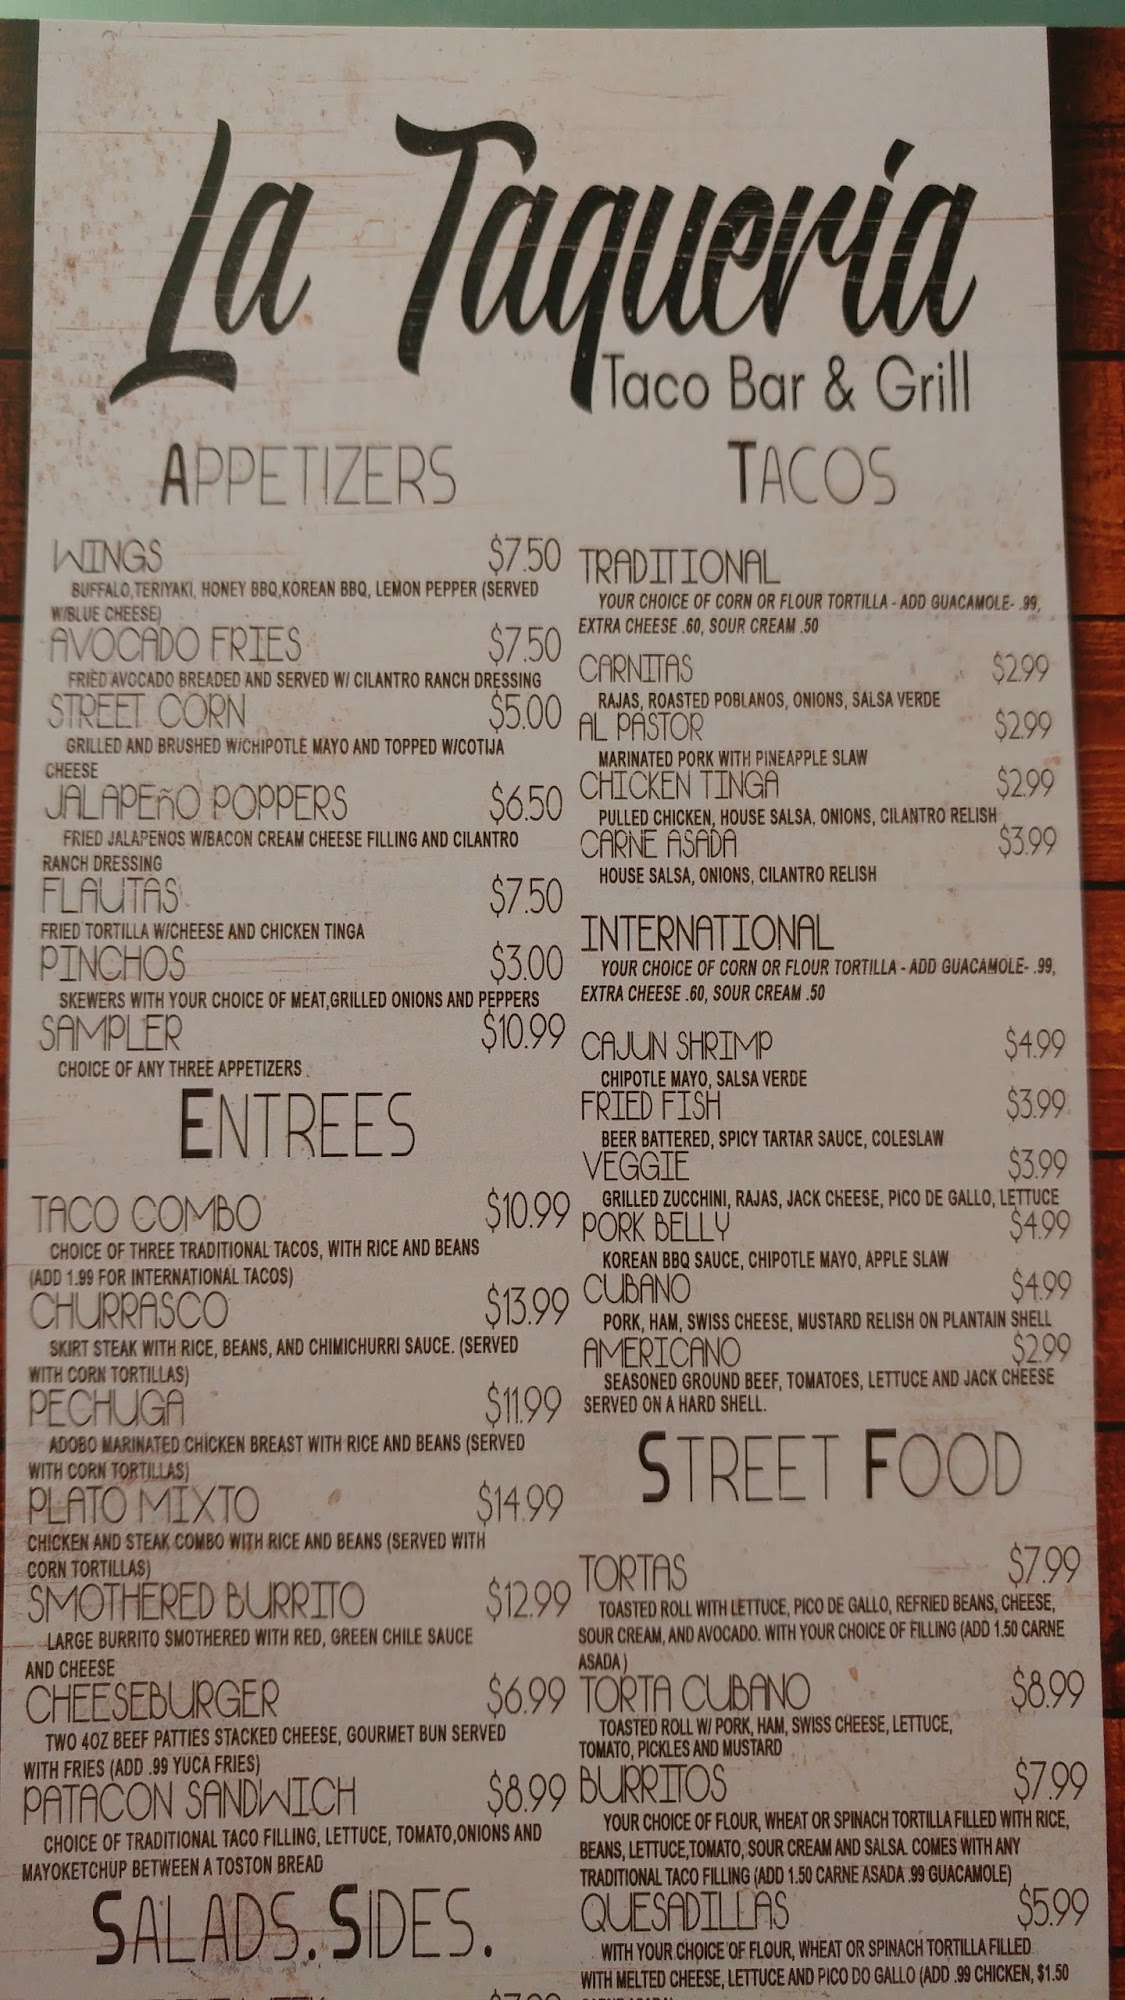 La Taqueria
Taco Bar & Grill
APPETIZERS
WINGS $7.50
BUFFALO,TERIYAKI, HONEY BBQ,KOREAN BBQ, LEMON PEPPER (SERVED
W/BLUE CHEESE)
AVOCADO FRIES $7.50
FRIED AVOCADO BREADED AND SERVED W/ CILANTRO RANCH DRESSING
STREET CORN $5.00
GRILLED AND BRUSHED W/CHIPOTLE MAYO AND TOPPED W/COTIJA
CHEESE
JALAPEñO POPPERS $6.50
FRIED JALAPENOS W/BACON CREAM CHEESE FILLING AND CILANTRO
RANCH DRESSING
FLAUTAS $7.50
FRIED TORTILLA W/CHEESE AND CHICKEN TINGA
PINCHOS $3.00
SKEWERS WITH YOUR CHOICE OF MEAT,GRILLED ONIONS AND PEPPERS
SAMPLER $10.99
CHOICE OF ANY THREE APPETIZERS
ENTREES
TACO COMBO $10.99
CHOICE OF THREE TRADITIONAL TACOS, WITH RICE AND BEANS
(ADD 1.99 FOR INTERNATIONAL TACOS)
CHURRASCO $13.99
SKIRT STEAK WITH RICE, BEANS, AND CHIMICHURRI SAUCE. (SERVED
WITH CORN TORTILLAS)
PECHUGA $11.99
ADOBO MARINATED CHICKEN BREAST WITH RICE AND BEANS (SERVED
WITH CORN TORTILLAS)
PLATO MIXTO $14.99
CHICKEN AND STEAK COMBO WITH RICE AND BEANS (SERVED WITH
CORN TORTILLAS)
SMOTHERED BURRITO $12.99
LARGE BURRITO SMOTHERED WITH RED, GREEN CHILE SAUCE
AND CHEESE
CHEESEBURGER $6.99
TWO 4OZ BEEF PATTIES STACKED CHEESE, GOURMET BUN SERVED
WITH FRIES (ADD .99 YUCA FRIES)
PATACON SANDWICH $8.99
CHOICE OF TRADITIONAL TACO FILLING, LETTUCE, TOMATO,ONIONS AND
MAYOKETCHUP BETWEEN A TOSTON BREAD
SALADS. SIDES.
TACOS
TRADITIONAL
YOUR CHOICE OF CORN OR FLOUR TORTILLA - ADD GUACAMOLE- .99,
EXTRA CHEESE .60, SOUR CREAM .50
CARNITAS $2.99
RAJAS, ROASTED POBLANOS, ONIONS, SALSA VERDE
AL PASTOR $2.99
MARINATED PORK WITH PINEAPPLE SLAW
CHICKEN TINGA $2.99
PULLED CHICKEN, HOUSE SALSA, ONIONS, CILANTRO RELISH
CARNE ASADA $3.99
HOUSE SALSA, ONIONS, CILANTRO RELISH
INTERNATIONAL
YOUR CHOICE OF CORN OR FLOUR TORTILLA - ADD GUACAMOLE- .99,
EXTRA CHEESE .60, SOUR CREAM .50
CAJUN SHRIMP $4.99
CHIPOTLE MAYO, SALSA VERDE
FRIED FISH $3.99
BEER BATTERED, SPICY TARTAR SAUCE, COLESLAW
VEGGIE $3.99
GRILLED ZUCCHINI, RAJAS, JACK CHEESE, PICO DE GALLO, LETTUCE
PORK BELLY $4.99
KOREAN BBQ SAUCE, CHIPOTLE MAYO, APPLE SLAW
CUBANO $4.99
PORK, HAM, SWISS CHEESE, MUSTARD RELISH ON PLANTAIN SHELL
AMERICANO $2.99
SEASONED GROUND BEEF, TOMATOES, LETTUCE AND JACK CHEESE
SERVED ON A HARD SHELL.
STREET FOOD
TORTAS $7.99
TOASTED ROLL WITH LETTUCE, PICO DE GALLO, REFRIED BEANS, CHEESE,
SOUR CREAM, AND AVOCADO. WITH YOUR CHOICE OF FILLING (ADD 1.50 CARNE
ASADA)
TORTA CUBANO $8.99
TOASTED ROLL W/ PORK, HAM, SWISS CHEESE, LETTUCE,
TOMATO, PICKLES AND MUSTARD
BURRITOS $7.99
YOUR CHOICE OF FLOUR, WHEAT OR SPINACH TORTILLA FILLED WITH RICE,
BEANS, LETTUCE,TOMATO, SOUR CREAM AND SALSA. COMES WITH ANY
TRADITIONAL TACO FILLING (ADD 1.50 CARNE ASADA .99 GUACAMOLE)
QUESADILLAS $5.99
WITH YOUR CHOICE OF FLOUR, WHEAT OR SPINACH TORTILLA FILLED
WITH MELTED CHEESE, LETTUCE AND PICO DO GALLO (ADD .99 CHICKEN, $1.50